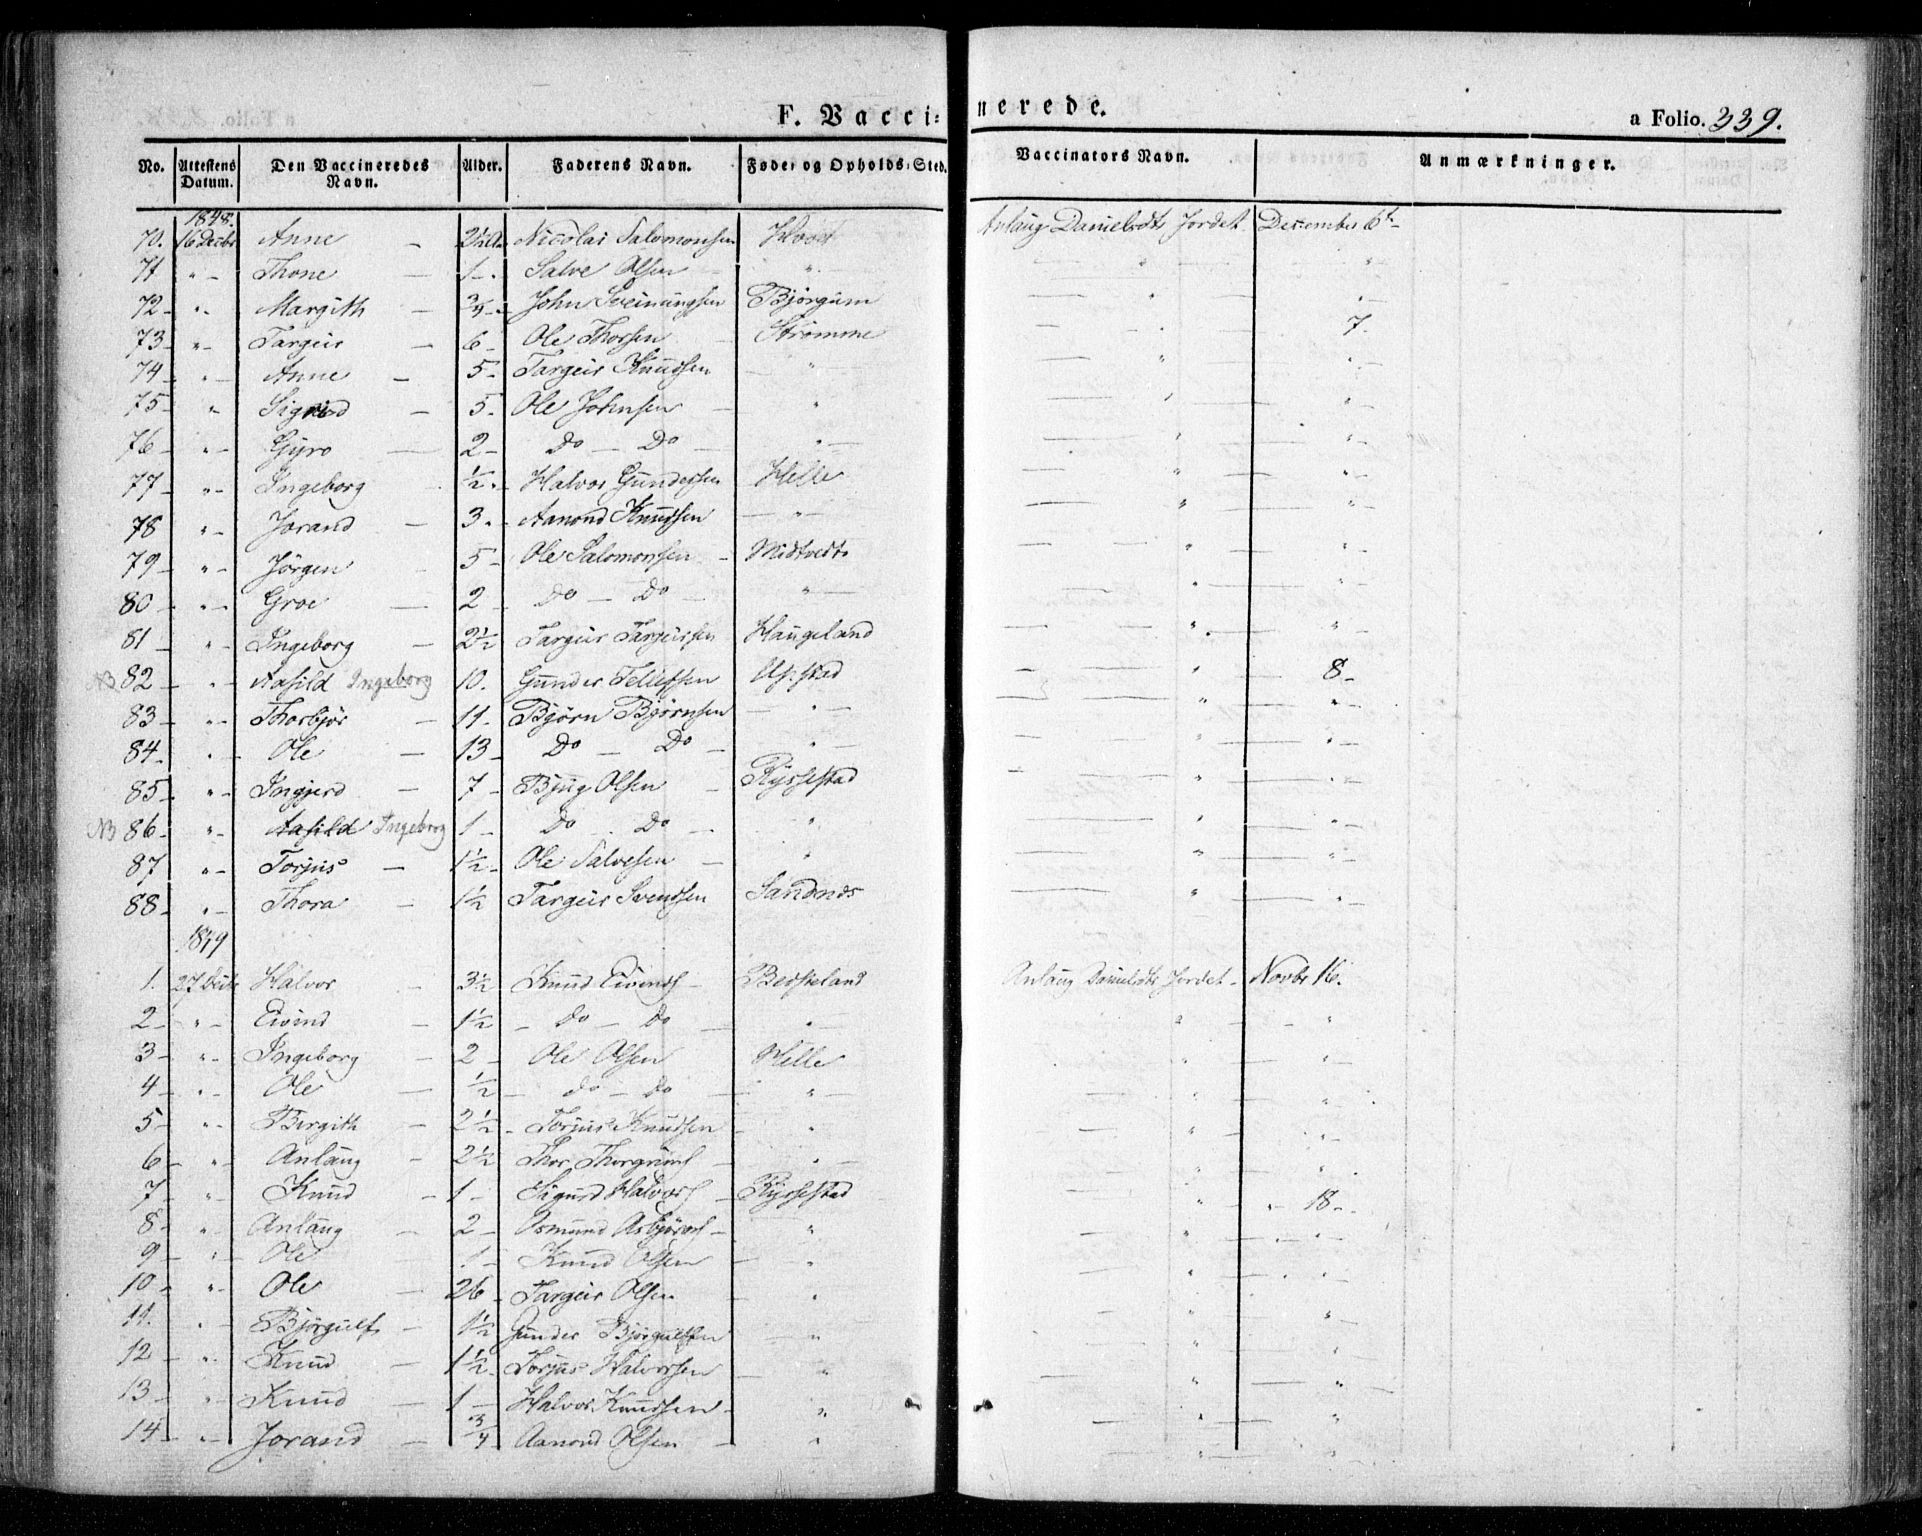 F. Vaccinerede.
a Folio. 339.
No. Attestens Datum. Den Vaccineredes Navn. Alder. Faderens Navn. Føde- og Opholds-Sted. Vaccinators Navn. Anmærkninger.
1848.
70. 16 Decbr Anne – 2½ Nicolai Salomonsen Anlaug Danielsdtr Jordet December 6te
71 " – Thone – 1 – Salve Olsen " "
72 – " – Margith – ¾ – John Sveinungsen Bjørgum " "
73 – " – Targeir – 6 – Ole Thorsen Strømme " 7 –
74 – " – Anne – 5 – Targeir Knudsen " " "
75 – " – Sigrid – 5 – Ole Johnsen – " " "
76 – " – Gyro – 2 – Do – Do " " "
77 – " – Ingeborg ½ – Halvor Gundersen Helle " "
78 " – Jorand – 3 – Aanond Knudsen " " "
79 – " – Jørgen 5 – Ole Salomonsen – Midtvedt " "
80 – " – Groe – 2 – Do – Do – " " "
81 – " – Ingeborg – 2½ Targeir Targeirsen Haugeland " "
NB 82 – " – Aasild Ingeborg 10. Gunder Tellefsen Upstad " 8 –
83 – " – Thorbjør – 11 – Bjørn Bjørnsen " " "
84 – " – Ole – 13 – Do – Do – " " "
85 – " – Ingjerd – 7 – Bjug Olsen – Rysstad " "
NB 86 – " – Aasild Ingeborg 1 – Do – Do – " " "
87 – " – Torjus – 1½ – Ole Salvesen – " " "
88 – " – Thora – 1½ Targeir Svendsen Sandnes " "
1849
1. 27 Halvor – 3½ Knud Eivends – Besteland Anlaug Danielsdtr Jordet – Novbr 16.
2 – " – Eivind – 1½ – do – Do – " " "
3 – " – Ingeborg – 2 – Ole Olsen Helle " "
4 – " – Ole – ½ – do – Do – " " "
5 – " – Bergith – 2½ – Torjus Knudsen – " " "
6 – " – Anlaug – 2½ Thor Thorgrims – " " "
7 – " Knud – 1 – Sigurd Halvors – Rysstad " " – 18 –
8 – " – Anlaug – 2 – Osmund Asbjørns – " " "
9 – " – Ole 1 – Knud Olsen – " " "
10 – " – Ole – 26 – Targeir Olsen " " "
11. " – Bjørgulf – 1½ Gunder Bjørgulfsen – " " "
12 – " – Knud – 1½ – Torjus Halvorsen – " " "
13 – " – Knud – 1 – Halvor Knudsen – " " "
14 – " – Jorand – ¾ – Aanond Olsen – " " "